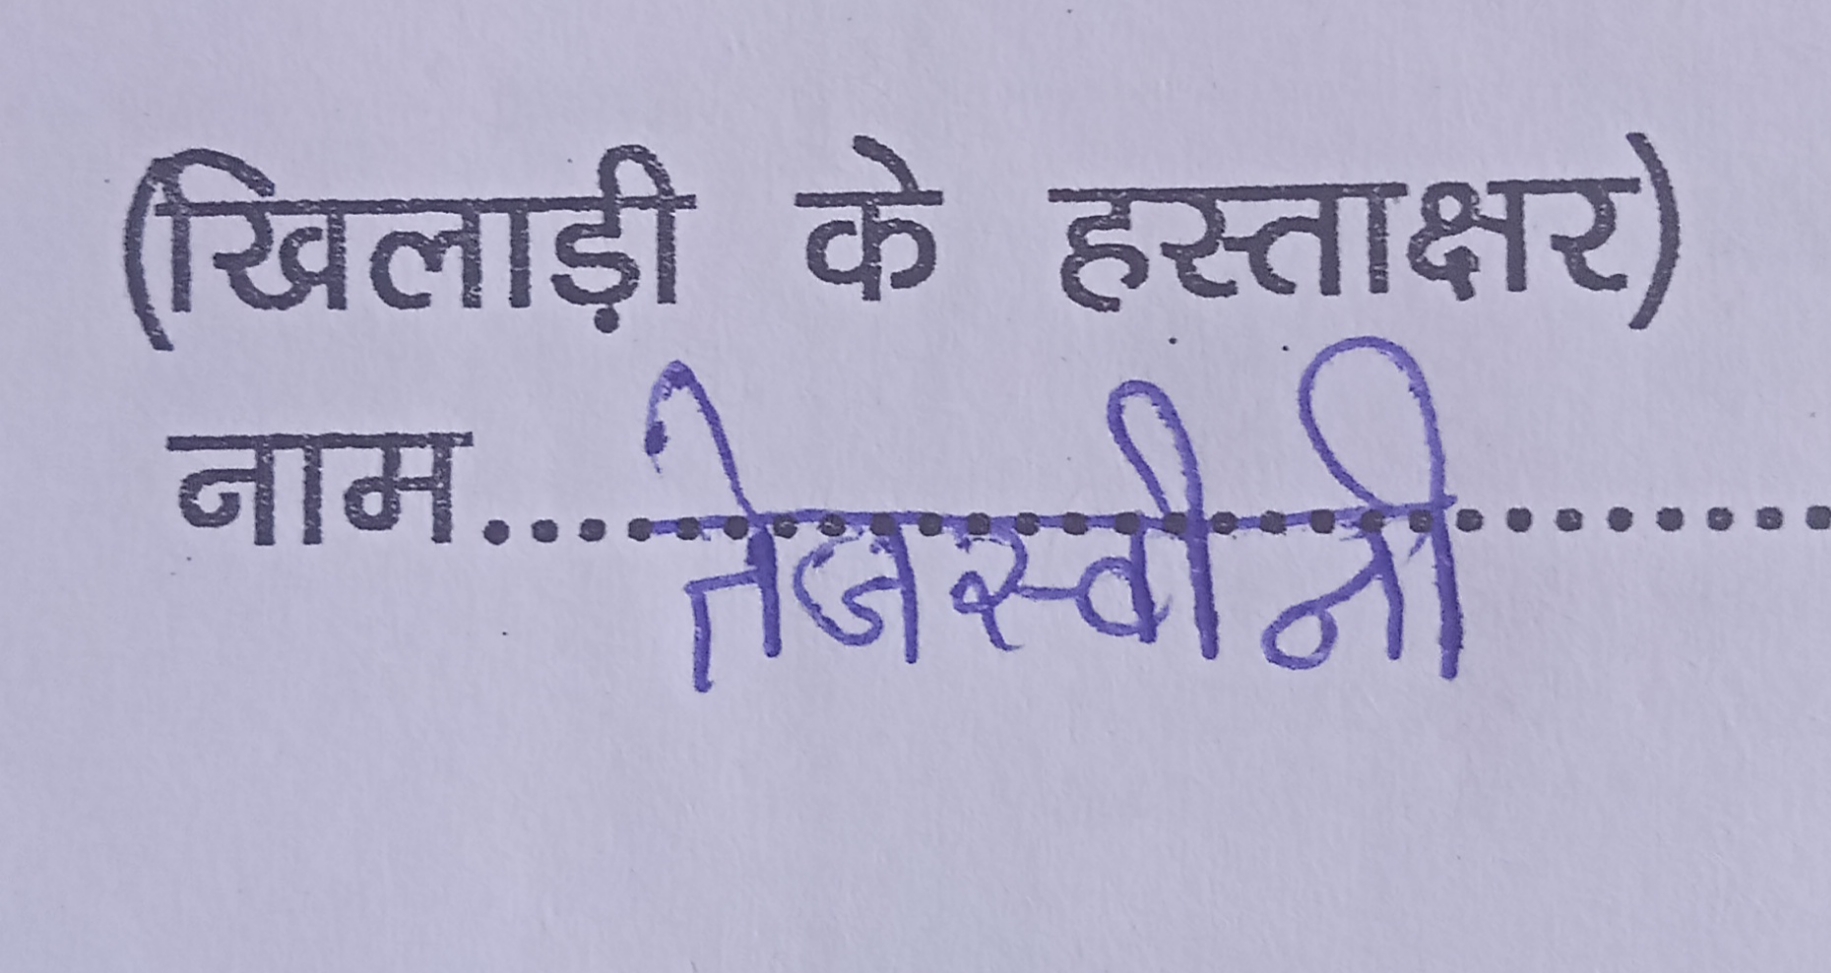 (खिलाड़ी के हस्ताक्षर)
नाम.......तेजस्वीनी.......